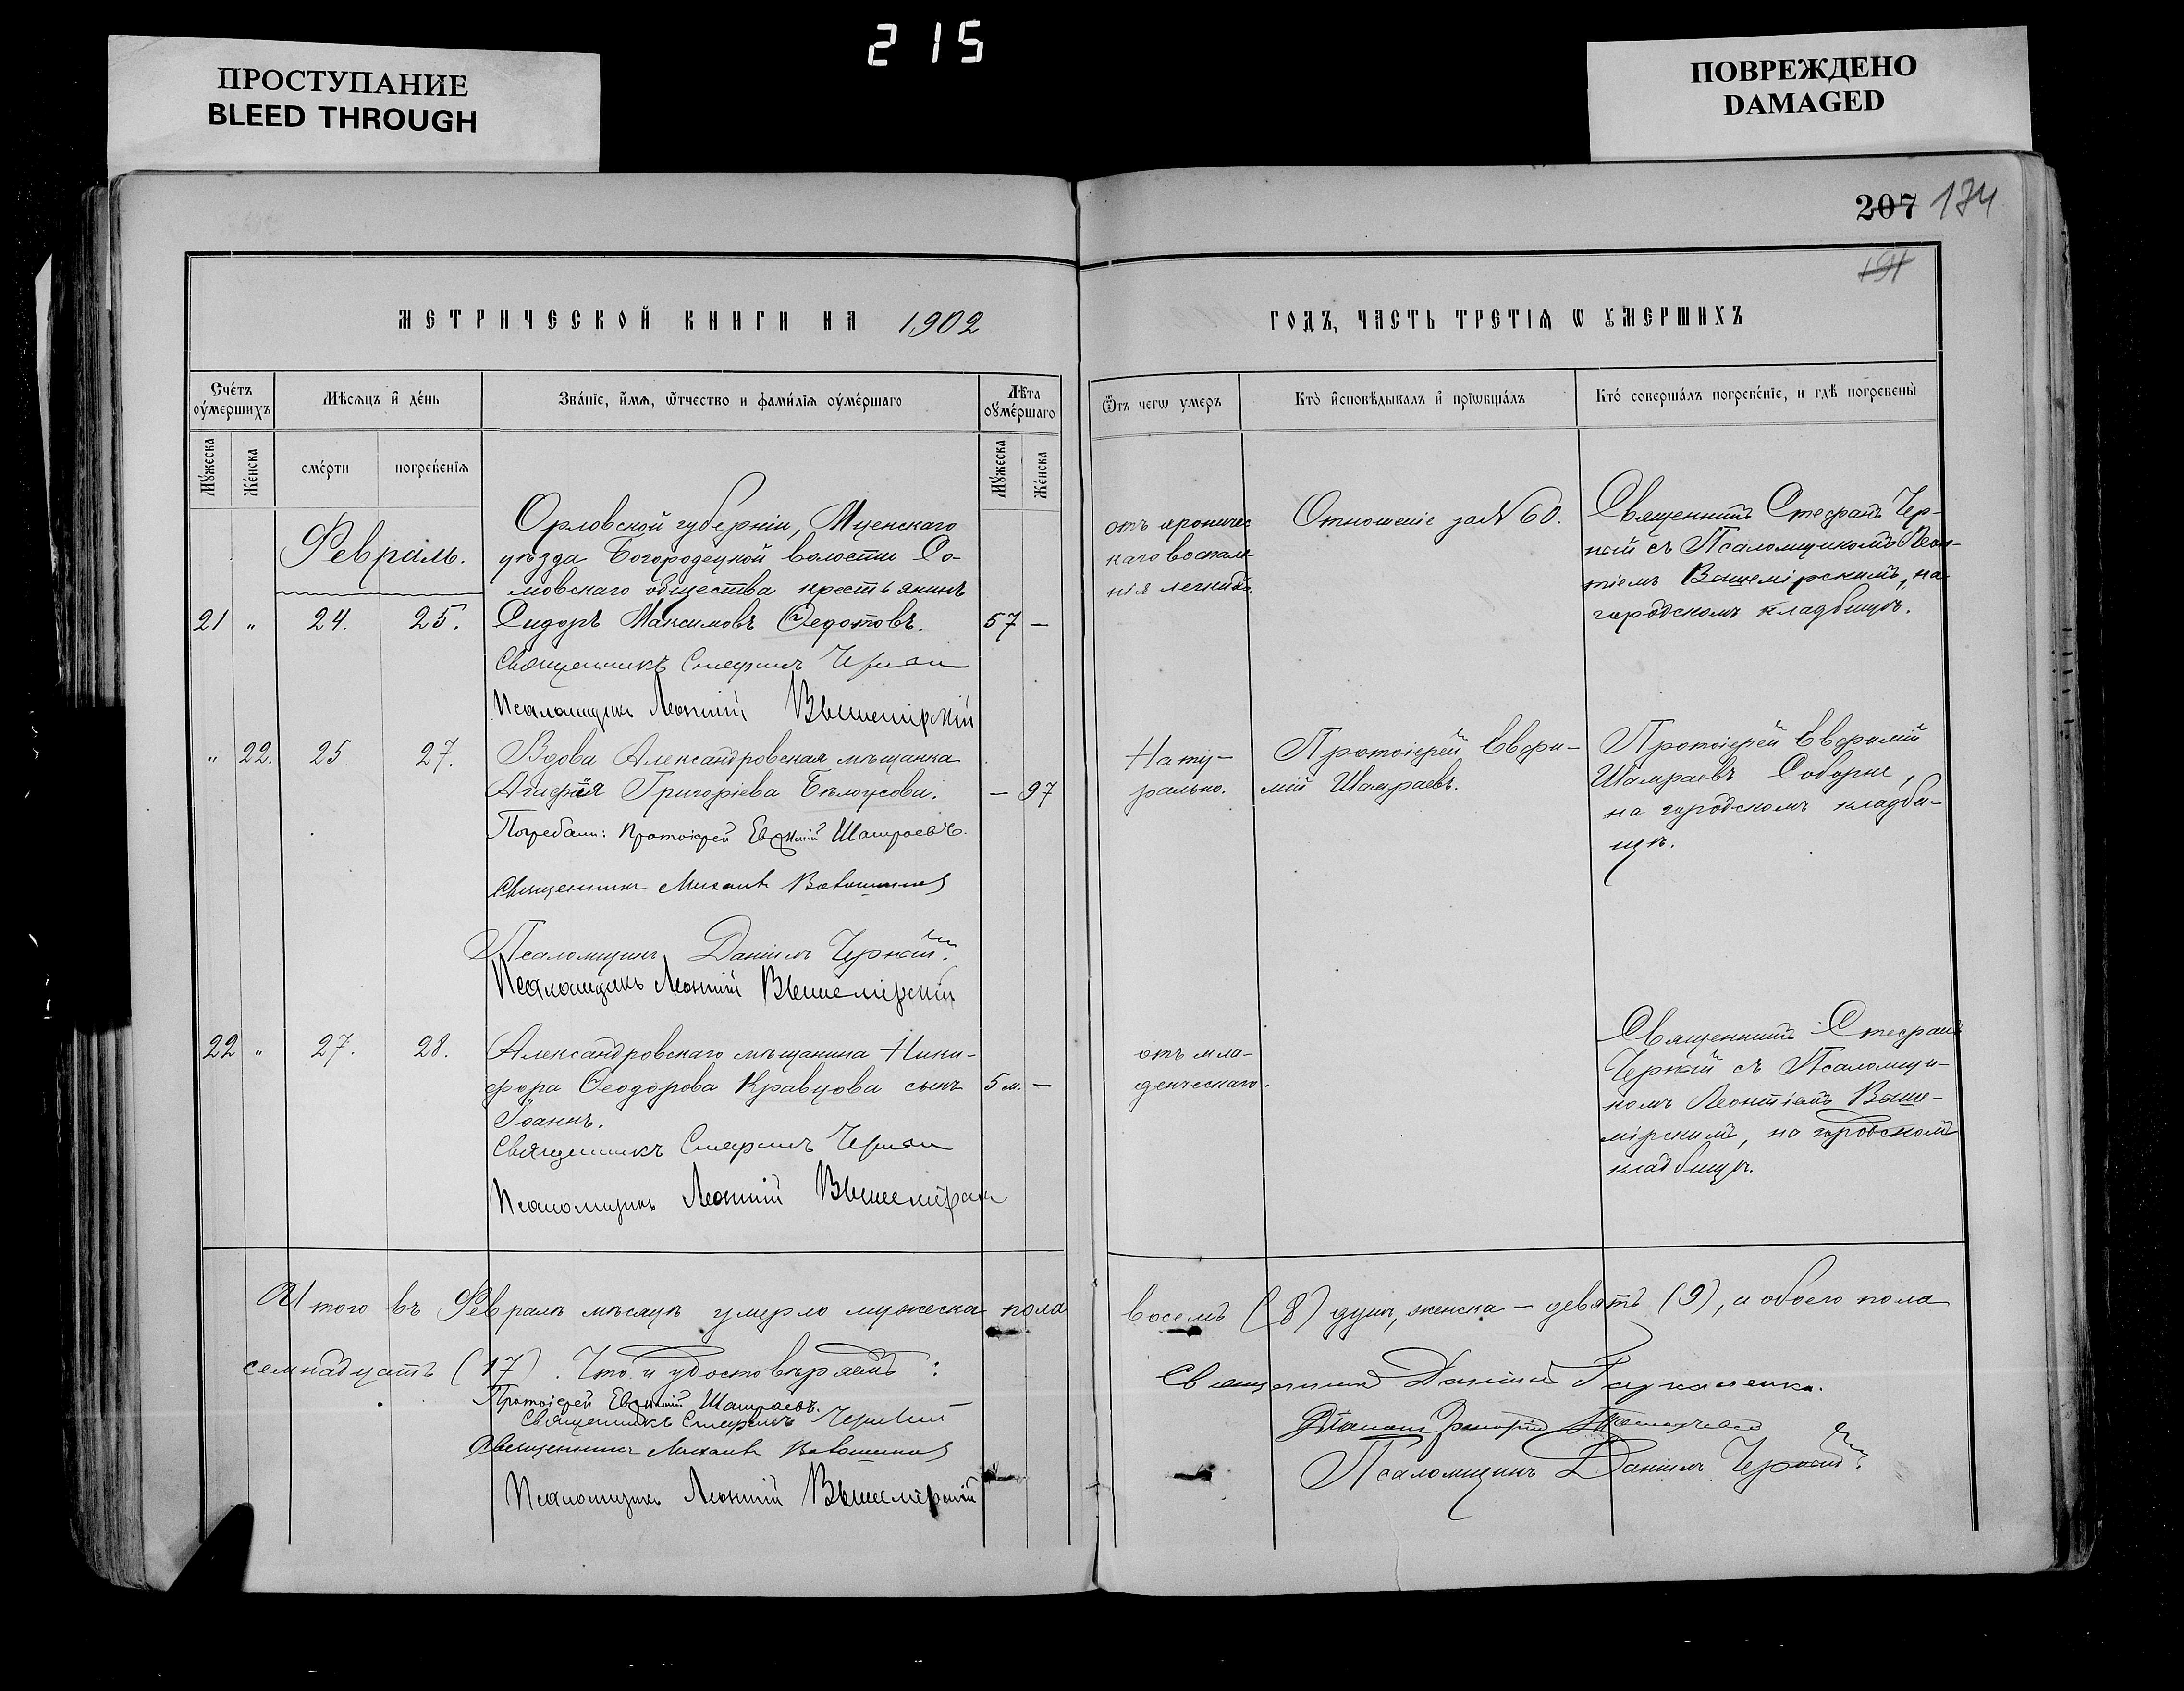 215
ПРОСТУПАНИЕ
BLEED THROUGH
ПОВРЕЖДЕНО
DAMAGED
207 174
191
МЕТРИЧЕСКОЙ КНИГИ НА 1902
ГОДЪ, ЧАСТЬ ТРЕТІѦ Ѡ ОУМЕРШИХЪ
Сче́тъ оу́мершихъ
Мѣсѧцъ и҆ де́нь
Зва́нїе, и҆́мѧ, ѿтчество и фами́лїѧ оуме́ршаго
Лѣта оуме́ршаго
Ѿ чегѡ умеръ
Кто̀ и҆сповѣдывалъ и҆ прїѡбща́лъ
Кто́ соверша́лъ погребе́нїе, и гдѣ погребены̀
Му́жеска
Же́нска
сме́рти
погребе́нїѧ
Му́жеска
Же́нска
Февраль.
Орловской губерніи, Мценскаго
уѣзда Богородецкой волости Со-
мовскаго общества крестьянинъ
21 " 24. 25. Сидоръ Максимовъ Ѳедотовъ. 57 –
Священникъ Стефанъ Черный
Псаломщикъ Леонтій Вышемірскій
отъ хроничес
каго воспале
нія легкихъ.
Отношеніе за № 60.
Священникъ Стефанъ Чер-
ный съ Псаломщикомъ Леон-
тіемъ Вышемірскимъ, на
городскомъ кладбищѣ.
" 22. 25. 27. Вдова Александровская мѣщанка
Агафія Григоріева Бѣлоусова. – 97
Погребали: Протоіерей Евфимій Шамраевъ.
Священникъ Михаилъ
Псаломщикъ Даніилъ Черный.
Псаломщикъ Леонтій Вышемірскій
Нату-
рально.
Протоіерей Евфи-
мій Шамраевъ.
Протоіерей Евфимій
Шамраевъ Соборне,
на городскомъ кладби-
щѣ.
22 " 27. 28. Александровскаго мѣщанина Ники-
фора Ѳеодорова Кравцова сынъ 5 м. –
Іоаннъ.
Священникъ Стефанъ Черный
Псаломщикъ Леонтій Вышемірскій
отъ мла-
денческаго.
Священникъ Стефанъ
Черный съ Псаломщи-
комъ Леонтіемъ Выше-
мірскимъ, на городскомъ
кладбищѣ.
Итого въ Февралѣ мѣсяцѣ умерло мужеска пола
восемь (8) душъ, женска – девять (9), а обоего пола
семнадцать (17). Что и удостовѣряемъ:
Протоіерей Евфимій Шамраевъ.
Священникъ Стефанъ Черный
Священникъ Михаилъ
Псаломщикъ Леонтій Вышемірскій
Священникъ Даніилъ
Діаконъ Григорій
Псаломщикъ Даніилъ Черный.